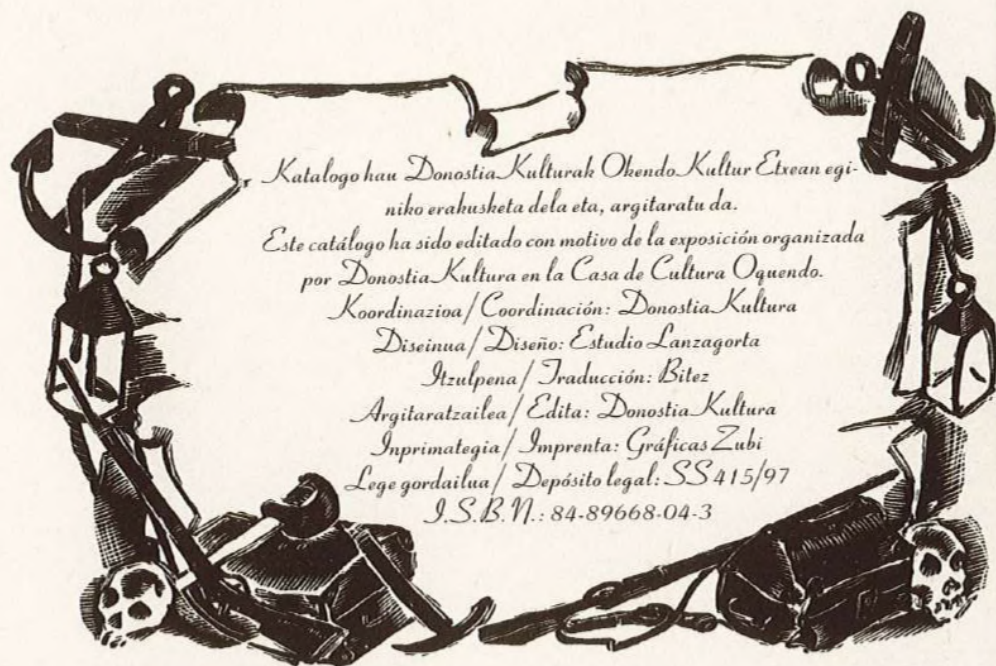 Katalogo hau Donostia Kulturak Okendo Kultur Etxean egi-
niko erakusketa dela eta, argitaratu da.
Este catálogo ha sido editado con motivo de la exposición organizada
por Donostia Kultura en la Casa de Cultura Oquendo.
Koordinazioa / Coordinación: Donostia Kultura
Diseinua / Diseño: Estudio Lanzagorta
Itzulpena / Traducción: Bitez
Argitaratzailea / Edita: Donostia Kultura
Inprimategia / Imprenta: Gráficas Zubi
Lege gordailua / Depósito legal: SS 415/97
I.S.B.N.: 84-89668-04-3